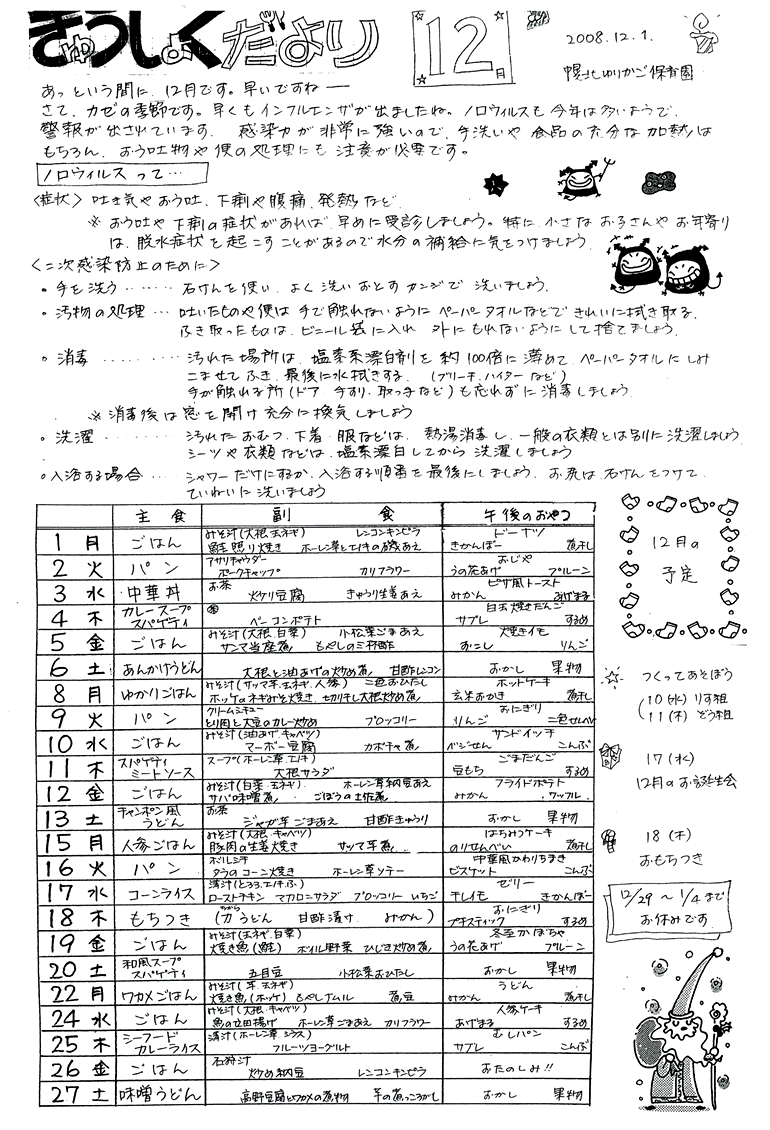 きゅうしょくだより
12月
2008.12.1.
幌北ゆりかご保育園
あっという間に、12月です。早いですね――
さて、カゼの季節です。早くもインフルエンザが出ましたね。ノロウィルスも今年は多いようで、
警報が出されています。感染力が非常に強いので、手洗いや食品の充分な加熱は
もちろん、おう吐物や便の処理にも注意が必要です。
ノロウィルスって…
〈症状〉吐き気やおう吐、下痢や腹痛、発熱など
※おう吐や下痢の症状があれば、早めに受診しましょう。特に、小さなお子さんやお年寄り
は、脱水症状を起こすことがあるので水分の補給に気をつけましょう。
〈二次感染防止のために〉
・手を洗う……石けんを使い、よく洗いおとすカンジで洗いましょう。
・汚物の処理…吐いたものや便は手で触れないようにペーパータオルなどできれいに拭き取る。
ふき取ったものは、ビニール袋に入れ外にもれないようにして捨てましょう。
・消毒………汚れた場所は、塩素系漂白剤を約100倍に薄めて、ペーパータオルにしみ
こませてふき、最後に水拭きする。(ブリーチ、ハイターなど)
手が触れる所(ドア、手すり、取っ手など)も忘れずに消毒しましょう。
※消毒後は窓を開け充分に換気しましょう
・洗濯………汚れたおむつ、下着・服などは、熱湯消毒し、一般の衣類とは別に洗濯しましょう
シーツや衣類などは、塩素漂白してから洗濯しましょう
・入浴する場合…シャワーだけにするか、入浴する順番を最後にしましょう。お尻は石けんをつけて、
ていねいに洗いましょう
主食 副食 午後のおやつ
1 月 ごはん みそ汁(大根、玉ネギ) レンコンキンピラ ドーナツ
鮭照り焼き ホーレン草とエノキの磯あえ きかんぼー 煮干し
2 火 パン アサリチャウダー おじや
ポークチャップ カリフラワー うの花あげ プルーン
3 水 中華丼 お茶 ピザ風トースト
炒り豆腐 きゅうり生姜あえ みかん あげまる
4 木 カレースープスパゲティ ベーコンポテト 白玉焼きだんご
サブレ するめ
5 金 ごはん みそ汁(大根、白菜) 小松菜ごまあえ 焼きイモ
サンマ当座煮 もやしの三杯酢 おこし りんご
6 土 あんかけうどん 大根と油あげの炒め煮 甘酢レンコン おかし 果物
8 月 ゆかりごはん みそ汁(サツマ芋、玉ネギ、人参) 二色おひたし ホットケーキ
ホッケのネギみそ焼き 切り干し大根炒め煮 玄米おかき 煮干し
9 火 パン クリームシチュー おにぎり
とり肉と大豆のカレー炒め ブロッコリー りんご 二色せんべい
10 水 ごはん みそ汁(油あげ、キャベツ) サンドイッチ
マーボー豆腐 カボチャ煮 ベジせん こんぶ
11 木 スパゲティミートソース スープ(ホーレン草、エノキ) ごまだんご
大根サラダ 豆もち するめ
12 金 ごはん みそ汁(白菜、玉ネギ) ホーレン草納豆あえ フライドポテト
サバ味噌煮 ごぼうの土佐煮 みかん ワッフル
13 土 チャンポン風うどん お茶
ジャガ芋ごまあえ 甘酢きゅうり おかし 果物
15 月 人参ごはん みそ汁(大根、キャベツ) はちみつケーキ
豚肉の生姜焼き サツマ芋煮 のりせんべい 煮干し
16 火 パン ボルシチ 中華風かわりちまき
タラのコーン焼き ホーレン草ソテー ビスケット こんぶ
17 水 コーンライス 清汁(とろろ、エノキ、ふ) ゼリー
ローストチキン マカロニサラダ ブロッコリー いちご 干しイモ きかんぼー
18 木 もちつき (力うどん 甘酢漬け みかん) おにぎり
プチスティック するめ
19 金 ごはん みそ汁(玉ネギ、白菜) 冬至かぼちゃ
焼き魚(鮭) ボイル野菜 ひじき炒め煮 うの花あげ プルーン
20 土 和風スープスパゲティ 五目豆 小松菜おひたし おかし 果物
22 月 ワカメごはん みそ汁(芋、玉ネギ) うどん
焼き魚(ホッケ) もやしナムル 煮豆 みかん 煮干し
24 水 ごはん みそ汁(大根、キャベツ) 人参ケーキ
魚の立田揚げ ホーレン草ごまあえ カリフラワー あげまる するめ
25 木 シーフードカレーライス 清汁(ホーレン草、シラス) むしパン
フルーツヨーグルト サブレ こんぶ
26 金 ごはん 石狩汁 おたのしみ!!
炒め納豆 レンコンキンピラ
27 土 味噌うどん 高野豆腐とワカメの煮物 芋の煮っころがし おかし 果物
12月の
予定
つくってあそぼう
10(水)りす組
11(木)ぞう組
17(水)
12月のお誕生会
18(木)
おもちつき
12/29～1/4まで
お休みです